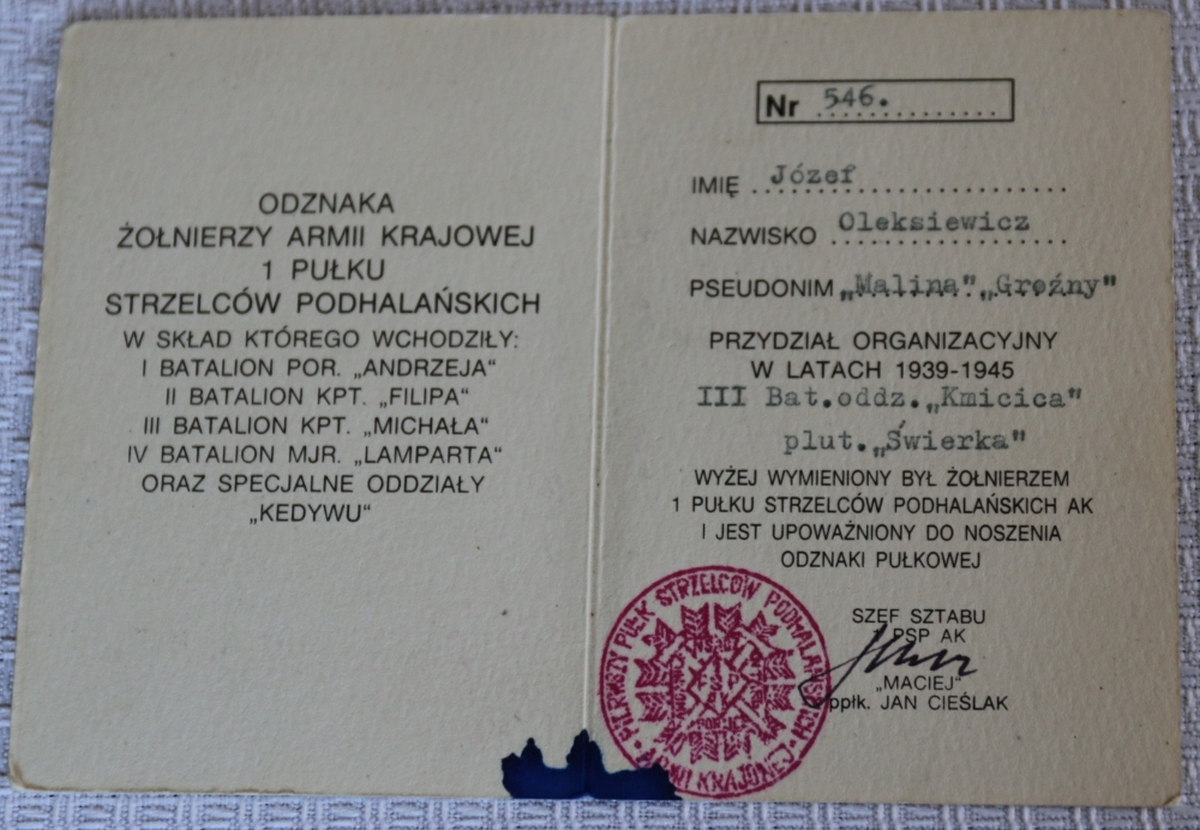 ODZNAKA
ŻOŁNIERZY ARMII KRAJOWEJ
1 PUŁKU
STRZELCÓW PODHALAŃSKICH
W SKŁAD KTÓREGO WCHODZIŁY:
I BATALION POR. „ANDRZEJA“
II BATALION KPT. „FILIPA“
III BATALION KPT. „MICHAŁA“
IV BATALION MJR. „LAMPARTA“
ORAZ SPECJALNE ODDZIAŁY
„KEDYWU“
Nr 546.
IMIĘ Józef
NAZWISKO Oleksiewicz
PSEUDONIM „Malina” „Groźny”
PRZYDZIAŁ ORGANIZACYJNY
W LATACH 1939-1945
III Bat.oddz.„Kmicica”
plut.„Świerka”
WYŻEJ WYMIENIONY BYŁ ŻOŁNIERZEM
1 PUŁKU STRZELCÓW PODHALAŃSKICH AK
I JEST UPOWAŻNIONY DO NOSZENIA
ODZNAKI PUŁKOWEJ
SZEF SZTABU
PSP AK
„MACIEJ“
ppłk. JAN CIEŚLAK
PIERWSZY PUŁK STRZELCÓW PODHALAŃSKICH
ARMII KRAJOWEJ